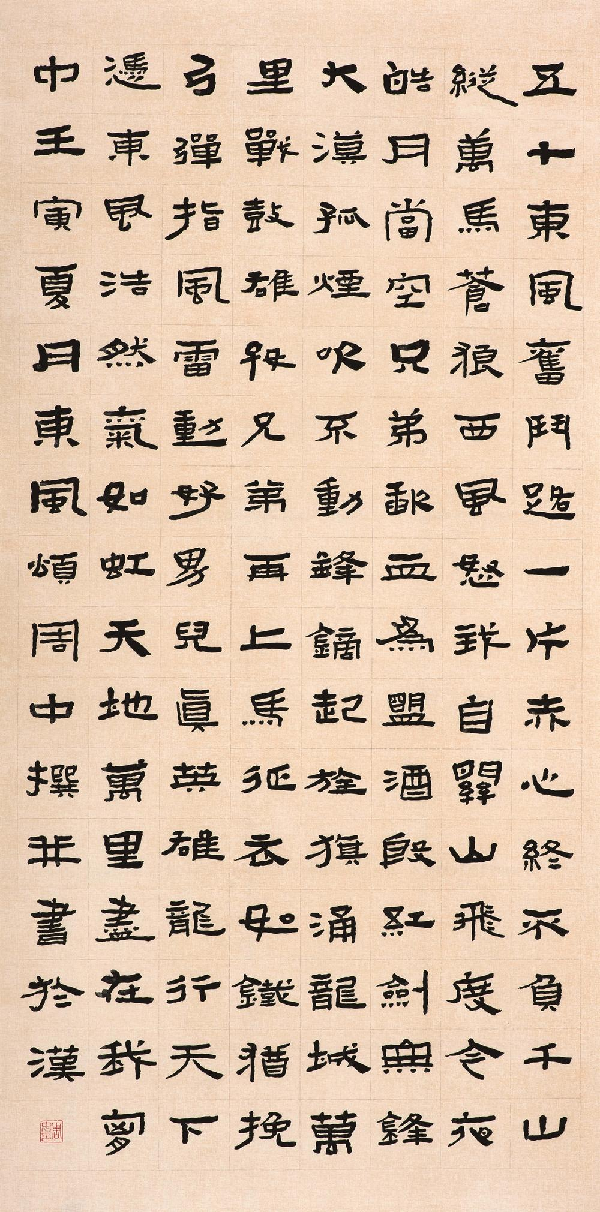 五十東風奮鬥路一片赤心終不負千山
縱萬馬蒼狼西風怒我自關山飛度今夜
皓月當空兄弟歃血為盟酒殷紅劍無鋒
大漠孤煙吹不動鋒鏑起旌旗涌龍城萬
里戰鼓雄好兄弟再上馬征衣如鐵猶挽
弓彈指風雷動好男兒真英雄龍行天下
憑東風浩然氣如虹天地萬里盡在我夢
中壬寅夏月東風頌周中撰并書於漢